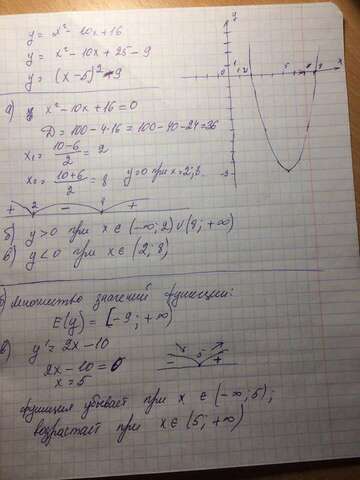 y = x² - 10x + 16
y = x² - 10x + 25 - 9
y = (x - 5)² - 9
а) x² - 10x + 16 = 0
D = 100 - 4·16 = 100 - 40 - 24 = 36
x₁ = (10-6)/2 = 2
x₂ = (10+6)/2 = 8 y=0 при x=2; 8.
+ 2 - 8 +
б) y > 0 при x ∈ (-∞; 2) ∪ (8; +∞)
в) y < 0 при x ∈ (2; 8)
б) множество значений функции:
E(y) = [-9; +∞)
в) y' = 2x - 10
2x - 10 = 0
x = 5
- 5 +
функция убывает при x ∈ (-∞; 5);
возрастает при x ∈ (5; +∞)